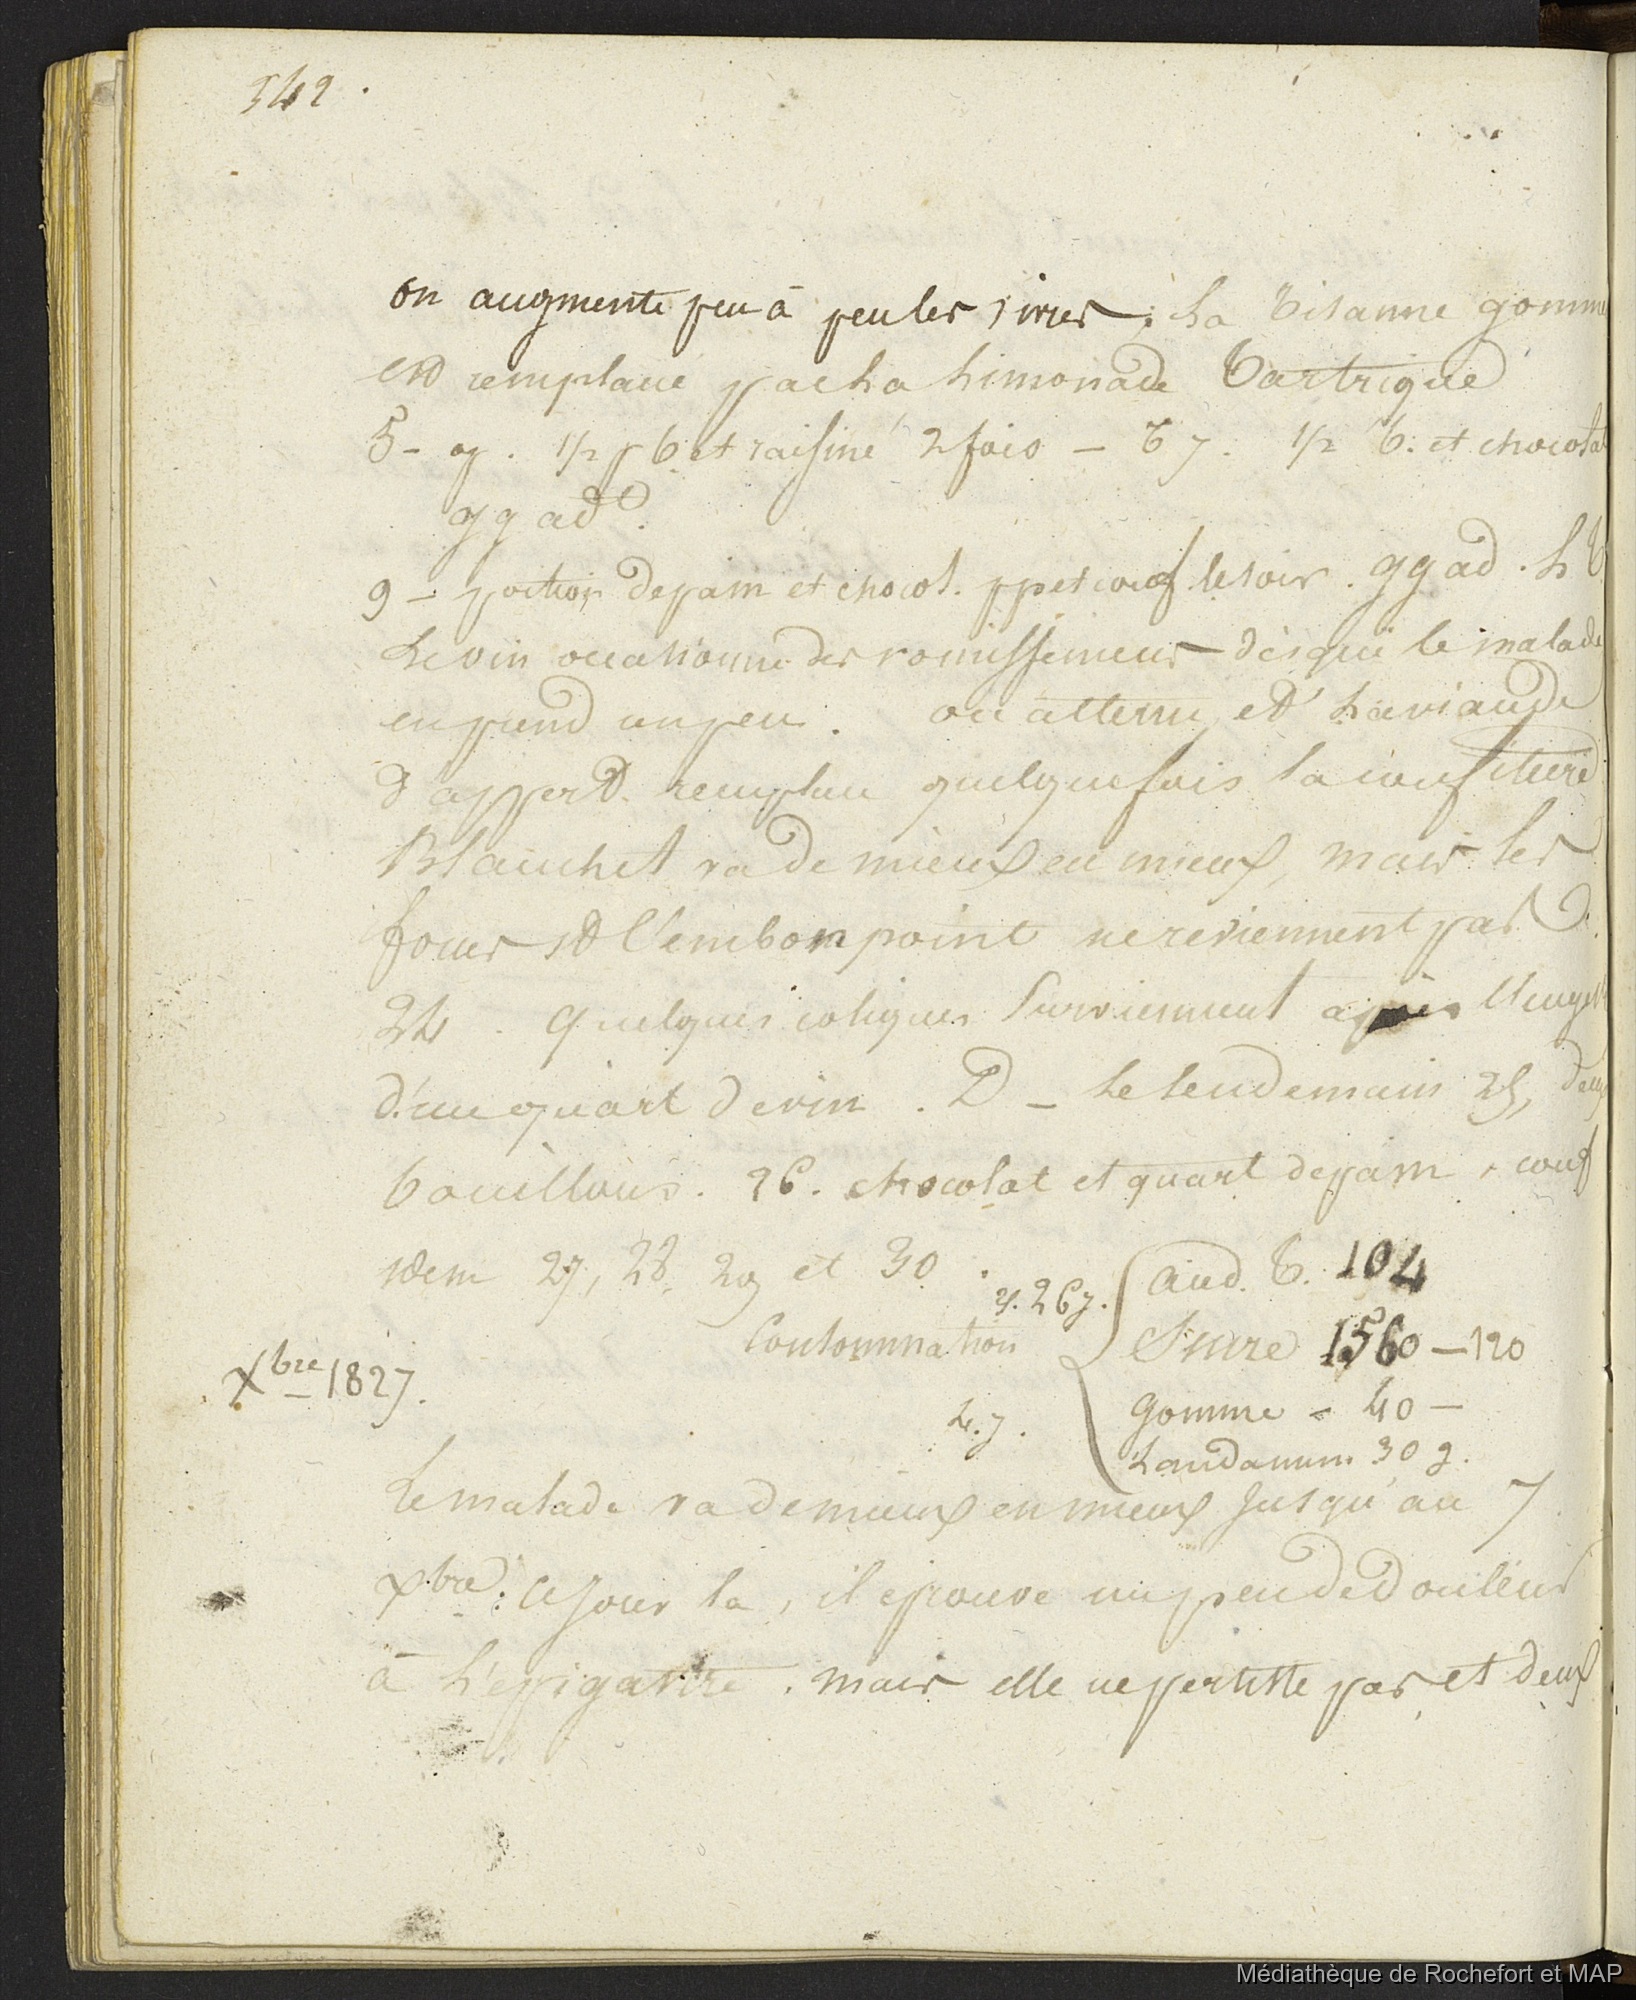 342.
on augmente peu à peu les vivres; La Tisanne gomm
est remplacé par la Limonade Tartrique
5 - og. 1/2 p b et raisiné 2 fois — 6 7. 1/2 b. et chocolat
gg ad.
9 - portion de pain et chocol. pp et conf le soir. gg ad. L T
Le vin occasionne des vomissemens dès que le malade
en prend un peu. ou attenu, et la viande
d'appert remplace quelquefois la confiture
Blanchet va de mieux en mieux, mais les
forces et l'embonpoint ne reviennent pas D.
24. quelques coliques surviennent après
d'un quart de vin. D — Le lendemain 25, deux
bouillons. 26. chocolat et quart de pain, conf
idem 27, 28, 29 et 30.
j. 267. acid. T. 104
Consommation Sucre 1560 — 120
Xbre 1827.
L. j. gomme - 40 —
Laudanum 30 g.
Le malade va de mieux en mieux Jusqu'au 7
xbre: Ce Jour la, il eprouve un peu de Douleur
à L'epigastre. mais elle ne persiste pas et deux
Médiathèque de Rochefort et MAP